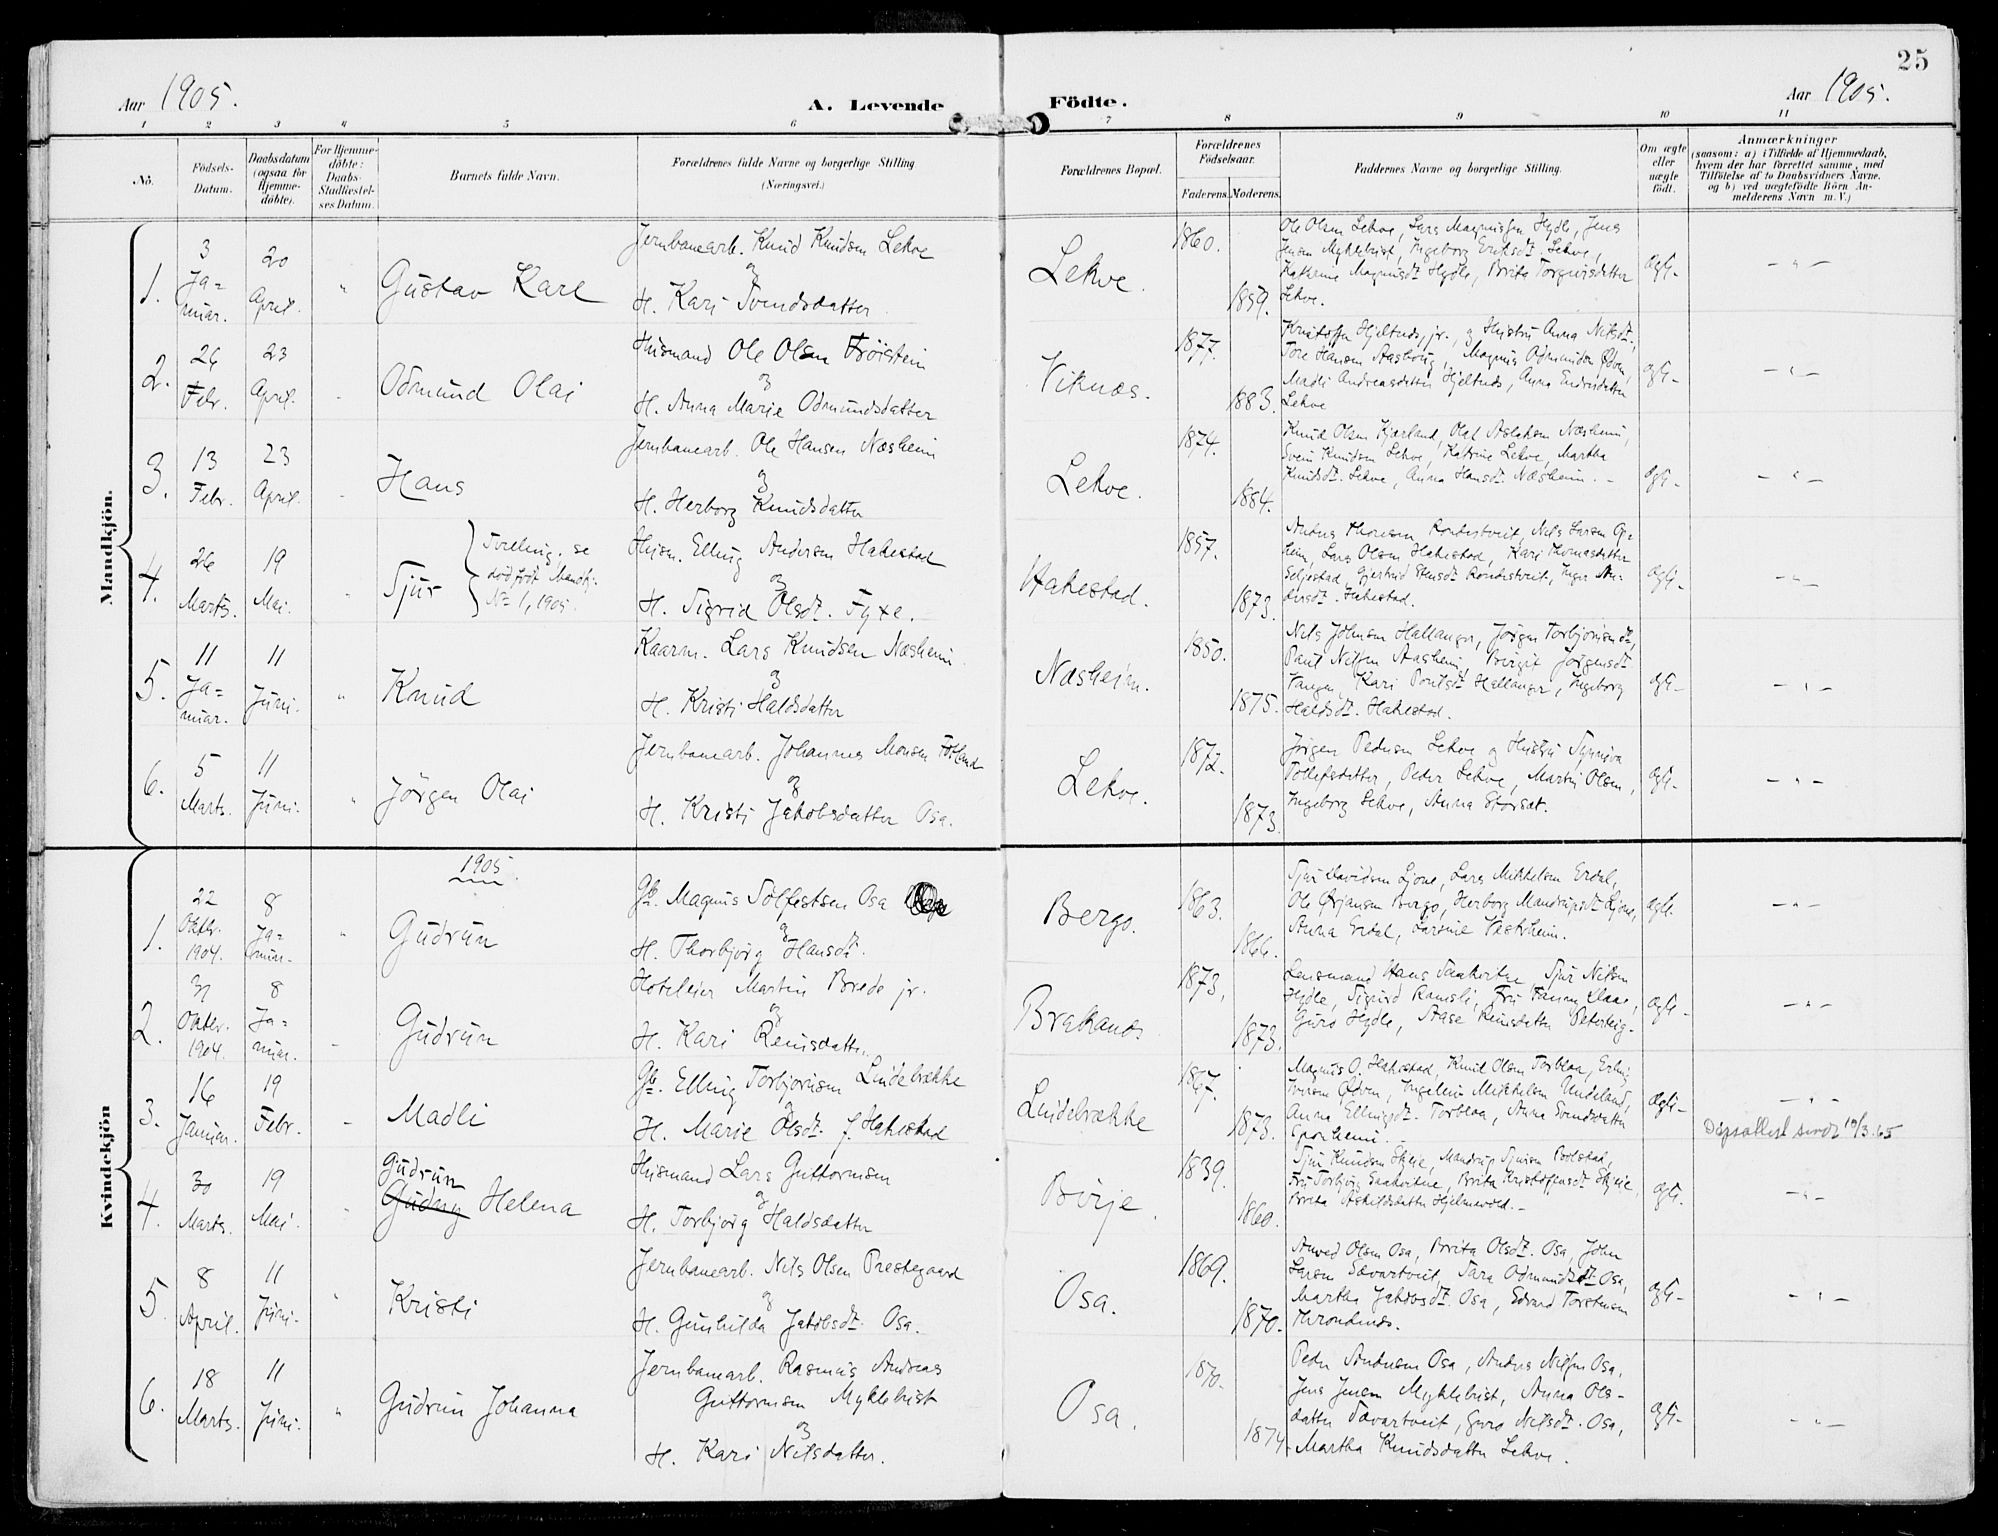 25
Aar 1905.
A. Levende Födte.
Aar 1905.
1 2 3 4 5 6 7 8 9 10 11
No.
Födsels-Datum.
Daabsdatum (ogsaa for Hjemme-döbte).
For Hjemme-döbte: Daabs-Stadfæstel-ses Datum.
Barnets fulde Navn.
Forældrenes fulde Navne og borgerlige Stilling (Næringsvei.)
Forældrenes Bopæl.
Forældrenes Födselsaar.
Faderens. Moderens.
Faddernes Navne og borgerlige Stilling.
Om ægte eller uægte födt.
Anmærkninger
(saasom: a) i Tilfælde af Hjemmedaab,
hvem der har forrettet samme, med
Tilföielse af to Daabsvidners Navne,
og b) ved uægtefödte Börn An-
melderens Navn m. V.)
Mandkjön.
1. 3 Ja= nuar. 20 April. " Gustav Karl
Jernbanearb. Knud Knudsen Lekve
og
H. Kari Svendsdatter
Lekve. 1860. 1859.
Ole Olsen Lekve, Lars Magnussen Hydle, Jens
Jensen Myklebust, Ingeborg Eriksdt. Lekve,
Kathrine Magnusdt. Hydle, Brita Torgeirsdatter
Lekve.
ægte- - " -
2. 26 Febr. 23 April. Odmund Olai
Husmand Ole Olsen Frøistein
og
H. Anna Marie Odmundsdatter
Viknæs. 1877. 1883.
Kristoffer Hjeltnes, jr. og Hustru Anna Nilsdt.,
Tore Hansen Aasbøug, Magnus Odmundsen Ødven,
Madli Andreasdatter Hjeltnes, Anna Endresdatter
Lekve
ægte- - " -
3. 13 Febr. 23 April. Hans
Jernbanearb. Ole Hansen Næsheim
og
H. Herborg Knudsdatter
Lekve. 1874. 1884.
Knud Olsen Kjærland, Olaf Aslaksen Næsheim,
Svein Knudsen Lekve, Katrine Lekve, Martha
Knudsdt. Lekve, Anna Hansdt. Næsheim. -
ægte- - " -
4. 26 Marts. 19 Mai. " Sjur
Tvilling. se
dødfødt Mandkj.
No 1, 1905.
Husm. Elling Andersen Hakestad
og
H. Sigrid Olsdt. Tyxe.
Hakestad. 1857. 1873.
Anders Thorsen Rondestveit, Nils Larsen
Lars Olsen Hakestad, Kari Thomasdatter
Seljestad, Gjertrud Stensdt. Rondestveit, Inger An-
dersdt. Hakestad.
ægte- - " -
5. 11 Ja= nuar. 11 Juni. " Knud
Kaarm. Lars Knudsen Næsheim.
og
H. Kristi Haldsdatter
Næsheim. 1850. 1875.
Nils Johnsen Hallanger, Jørgen Torbjørnsen
Paul Nilsen Aasheim, Birgit Jørgensdt.
Vangen, Kari Poulsdt. Hallanger, Ingeborg
Haldsdt. Hakestad.
ægte- - " -
6. 5 Marts. 11 Juni. " Jörgen Olai
Jernbanearb. Johannes Monsen Folland
og
H. Kristi Jakobsdatter Osa.
Lekve. 1872. 1873.
Jørgen Pedersen Lekve og Hustru Synneva
Tollefsdatter, Peder Lekve, Martin Olsen,
Ingeborg Lekve, Anna Størset.
ægte- - " -
Kvindekjön
1905.
1. 22 Oktbr. 1904. 8 Ja= nuar. " Gudrun
Gb. Magnus Solfestsen Osa
og
H. Thorbjørg Hansdt.
Bergo. 1863. 1866.
Sjur Davidsen Ljone, Lars Mikkelsen Erdal,
Ole Ørjansen Bergo, Herborg Mandrupsdt. Ljone,
Anna Erdal, Larsine Vestrheim.
ægte. - " -
2. 31 Oktbr. 1904. 8 Ja= nuar. Gudrun
Hoteleier Martin Brede jr.
og
H. Kari Reinsdatter.
Brakanes 1873, 1873.
Lensmand Hans Saakvitne, Sjur Nilsen
Hydle, Sigurd Ramsli, Fru Fanny Klaae,
Guro Hydle, Aase Reinsdatter
ægte- - " -
3. 16 Januar. 19 Febr. Madli
Gb. Elling Torbjørnsen Lindebrække
og
H. Marie Olsdt. f. Hakestad
Lindebrække 1867. 1873.
Magnus O. Hakestad, Knut Olsen Torblaa, Erling
Iversen Ødven, Ingeleiv Mikkelsen Undeland,
Anna Ellingsdt. Torblaa, Anna Svendsdatter
Sporheim.
ægte- - " -
Dåpsattest sendt 19/3.65
4. 30 Marts. 19 Mai. " Gudrun
Gudny Helena
Husmand Lars Guttormsen
og
H. Torbjørg Haldsdatter
Birje. 1839. 1860.
Sjur Knudsen Skeie, Mandrup Sjursen Bolstad,
Fru Torbjørg Saakvitne, Brita Kristoffersdt. Skeie,
Brita Askildsdatter Hjelmevold. -
ægte. - " -
5. 8 April. 11 Juni. " Kristi
Jernbanearb. Nils Olsen Prestegaard
og
H. Gunhilda Jakobsdt. Osa.
Osa. 1869. 1870.
Olsen Osa, Brita Olsdt. Osa, John
Larsen Sævartveit, Sara Odmundsdt. Osa,
Martha Jakobsdt. Osa, Edvard Torstensen
Throndnes.
ægte- - " -
6. 18 Marts. 11 Juni. " Gudrun Johanna
Jernbanearb. Rasmus Andreas
Guttormsen Myklebust
og
H. Kari Nilsdatter.
Osa. 1870. 1874.
Peder Andersen Osa, Anders Nilsen Osa,
Jens Jensen Myklebust, Anna Ols-
datter Sævartveit, Guro Nilsdt. Osa,
Martha Knudsdatter Lekve.
ægte- - " -